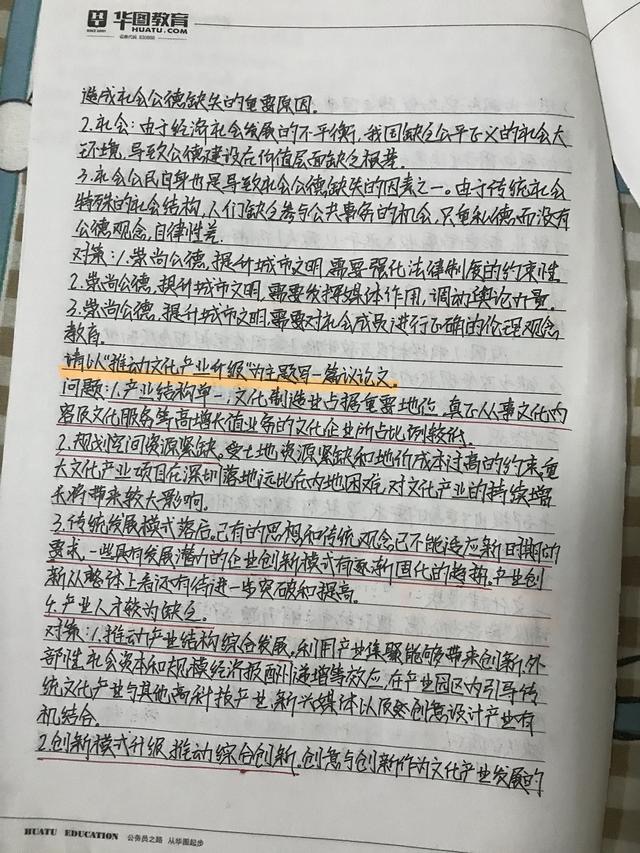 华图教育
HUATU.COM
造成社会公德缺失的重要原因。
2.社会:由于经济社会发展的不平衡,我国缺乏公平正义的社会大
环境,导致公德建设在价值层面缺乏根基。
3.社会公民自身也是导致社会公德缺失的因素之一。由于传统社会
特殊的社会结构,人们缺乏参与公共事务的机会,只重私德而没有
公德观念,自律性差.
对策:1.崇尚公德,提升城市文明,需要强化法律制度的约束性
2.崇尚公德,提升城市文明,需要发挥媒体作用,调动舆论力量.
3.崇尚公德,提升城市文明,需要对社会成员进行正确的伦理观念
教育.
请以“推动文化产业升级”为主题写一篇议论文。
问题:1.产业结构单一,文化制造业占据重要地位,真正从事文化内
容及文化服务等高增长值业务的文化企业所占比例较低.
2.规划空间资源紧缺。受土地资源紧缺和地价成本过高的约束,重
大文化产业项目在深圳落地远比在内地困难,对文化产业的持续增
长将带来较大影响。
3.传统发展模式落后,已有的思想和传统观念已不能适应新时期的
要求,一些具有发展潜力的企业创新模式有逐渐固化的趋势,产业创
新从整体上看还有待进一步突破和提高。
4.产业人才较为缺乏。
对策:1.推动产业结构综合发展,利用产业集聚能够带来创新,外
部性,社会资本和规模经济报酬递增等效应,在产业园区内引导传
统文化产业与其他高科技产业,新兴媒体以及创意设计产业有
机结合。
2.创新模式升级,推动综合创新,创意与创新作为文化产业发展的
HUATU EDUCATION 公务员之路 从华图起步